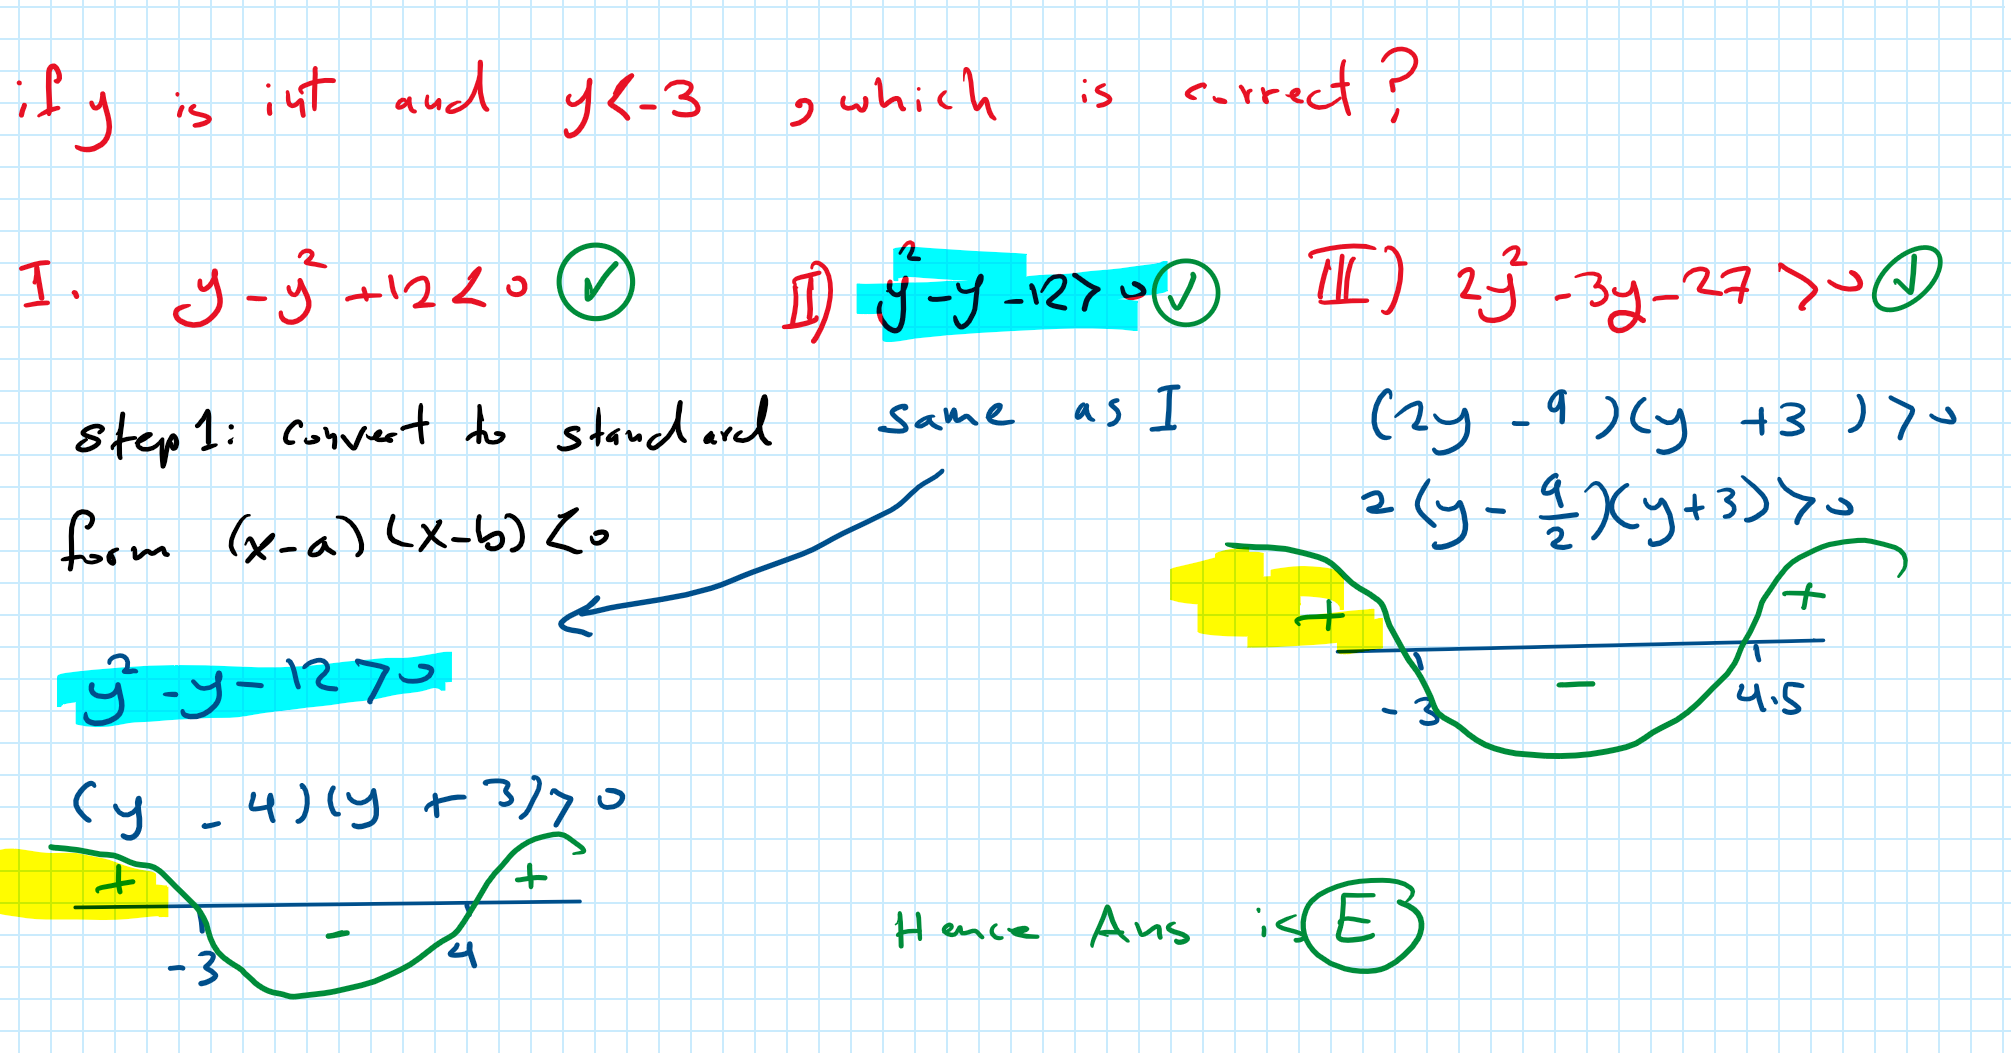 if y is int and y<-3 , which is correct?
I. y - y² + 12 < 0 ✓ II) y² - y - 12 > 0 ✓ III) 2y² - 3y - 27 > 0 ✓
step 1: convert to standard
form (x-a) (x-b) < 0
same as I
(2y - 9)(y + 3) > 0
2(y - 9/2)(y+3) > 0
+ - +
-3 4.5
y² - y - 12 > 0
(y - 4)(y + 3) > 0
+ - +
-3 4
Hence Ans is E